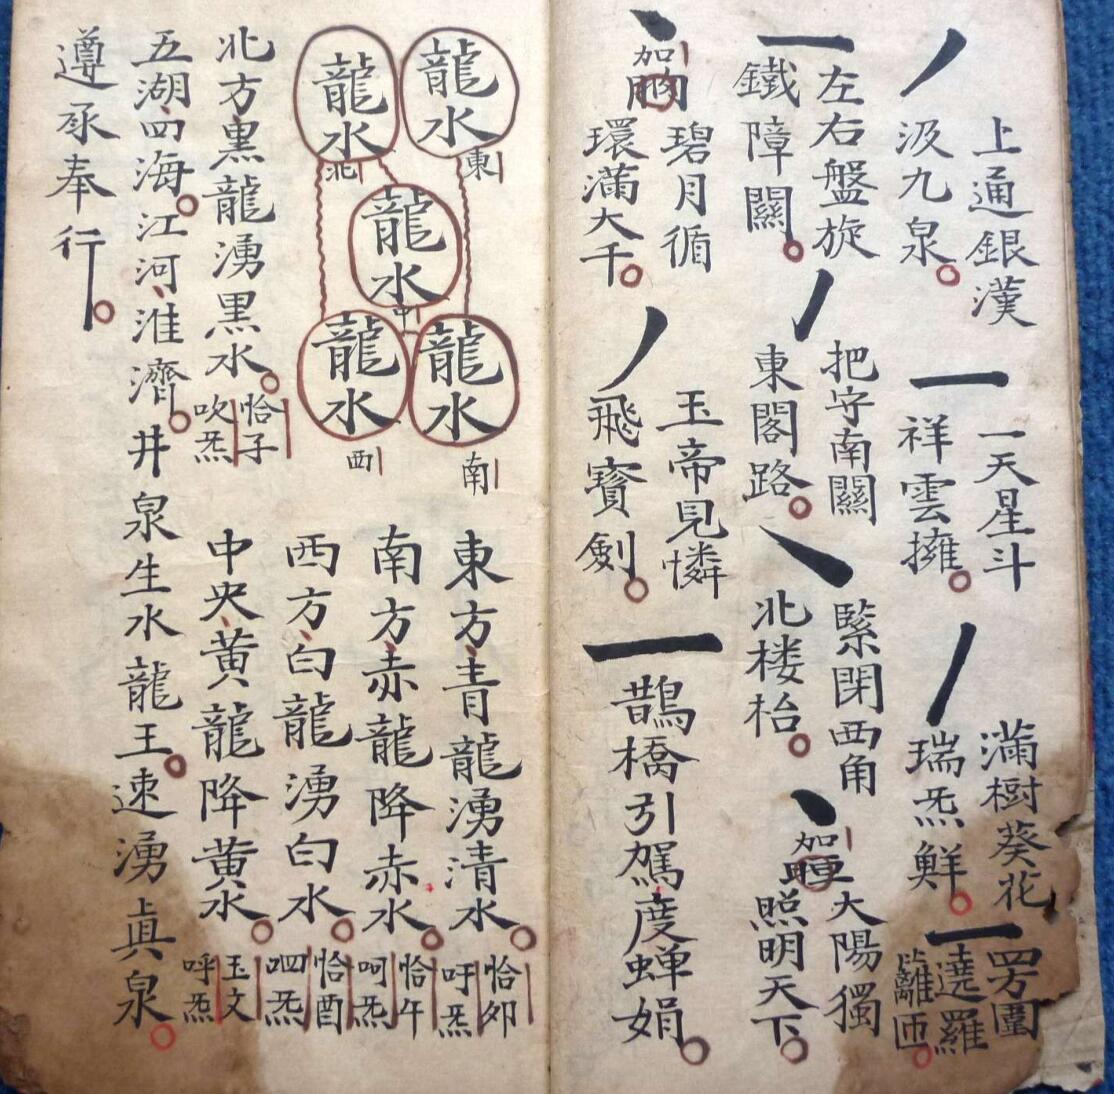 上通銀漢
汲九泉。
一天星斗
祥雲擁。
滿樹葵花
瑞炁鮮。
四方圍
遶羅
籬匝。
左右盤旋
鐵障關。
把守南關
東閣路。
緊閉西角
北楼枱。
加
大陽獨
照明天下。
加
碧月循
環滿大千。
玉帝見憐
飛寳劍。
鵲橋引駕度蝉娟。
龍水
東
龍水
北
龍水
中
龍水
南
龍水
西
東方青龍湧清水。
恰卯
吁炁
南方赤龍降赤水。
恰午
呵炁
西方白龍湧白水。
恰酉
呬炁
中央黃龍降黃水。
玉文
呼炁
北方黑龍湧黑水。
恰子
吹炁
五湖四海。江河淮濟。井泉生水龍王。速湧眞泉。
遵承奉行。